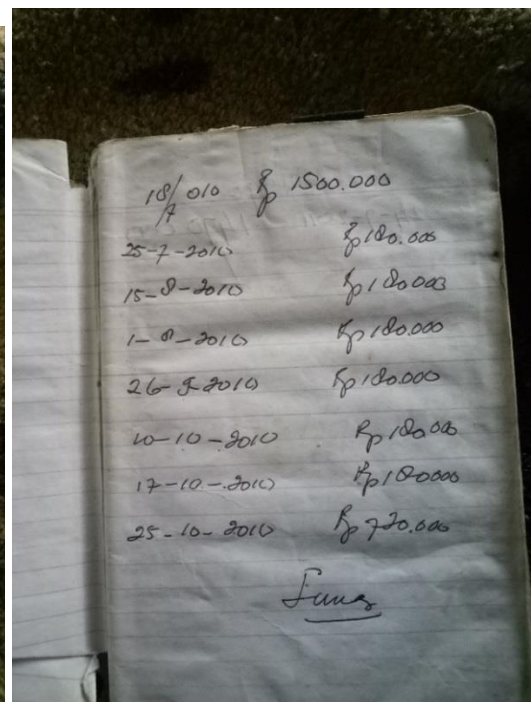 18/7 010 Rp 1500.000
25-7-2010 Rp 180.000
15-8-2010 Rp 180000
1-8-2010 Rp 180.000
26-9-2010 Rp 180.000
10-10-2010 Rp 180.000
17-10-2010 Rp 180000
25-10-2010 Rp 720.000
Lunas